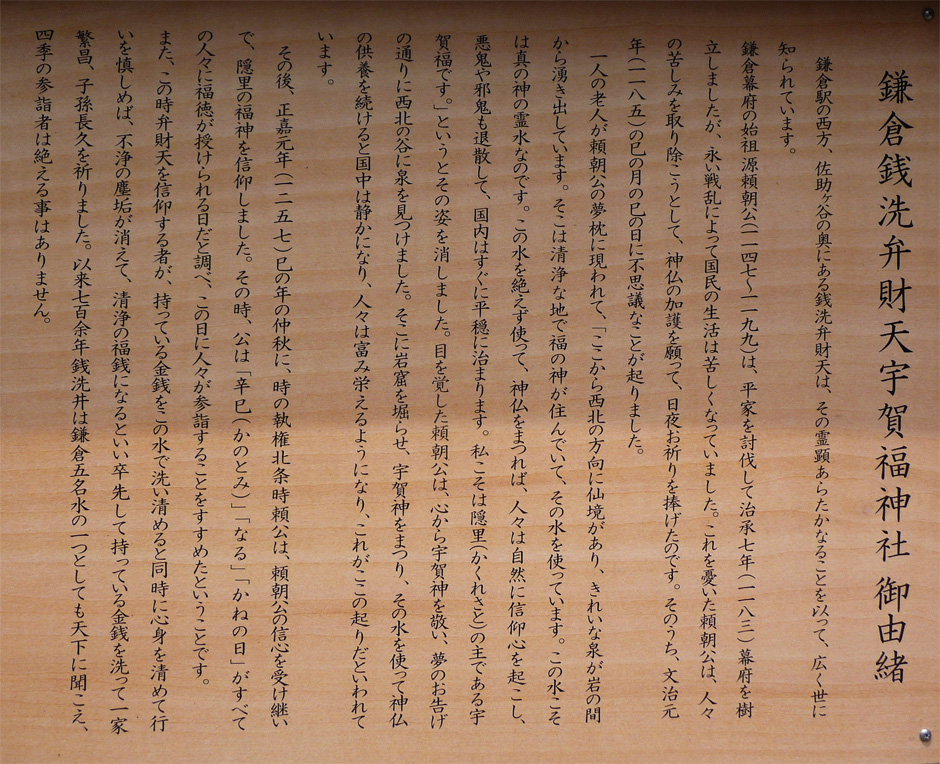 鎌倉銭洗弁財天宇賀福神社 御由緒
鎌倉駅の西方、佐助ヶ谷の奥にある銭洗弁財天は、その霊顕あらたかなることを以って、広く世に
知られています。
鎌倉幕府の始祖 源頼朝公(一一四七〜一一九九)は、平家を討伐して治承七年(一一八三)幕府を樹
立しましたが、永い戦乱によって国民の生活は苦しくなっていました。これを憂いた頼朝公は、人々
の苦しみを取り除こうとして、神仏の加護を願って、日夜お祈りを捧げたのです。そのうち、文治元
年(一一八五)の巳の月の巳の日に不思議なことが起りました。
一人の老人が頼朝公の夢枕に現われて、「ここから西北の方向に仙境があり、きれいな泉が岩の間
から湧き出しています。そこは清浄な地で福の神が住んでいて、その水を使っています。この水こそ
は真の神の霊水なのです。この水を絶えず使って、神仏をまつれば、人々は自然に信仰心を起こし、
悪鬼や邪鬼も退散して、国内はすぐに平穏に治まります。私こそは隠里(かくれざと)の主である宇
賀福です。」というとその姿を消しました。目を覚した頼朝公は、心から宇賀神を敬い、夢のお告げ
の通りに西北の谷に泉を見つけました。そこに岩窟を堀らせ、宇賀神をまつり、その水を使って神仏
の供養を続けると国中は静かになり、人々は富み栄えるようになり、これがここの起りだといわれて
います。
その後、正嘉元年(一二五七)巳の年の仲秋に、時の執権北条時頼公は、頼朝公の信心を受け継い
で、隠里の福神を信仰しました。その時、公は「辛巳(かのとみ)」「なる」「かねの日」がすべて
の人々に福徳が授けられる日だと調べ、この日に人々が参詣することをすすめたということです。
また、この時弁財天を信仰する者が、持っている金銭をこの水で洗い清めると同時に心身を清めて行
いを慎しめば、不浄の塵垢が消えて、清浄の福銭になるといい卒先して持っている金銭を洗って一家
繁昌、子孫長久を祈りました。以来七百余年銭洗井は鎌倉五名水の一つとしても天下に聞こえ、
四季の参詣者は絶える事はありません。